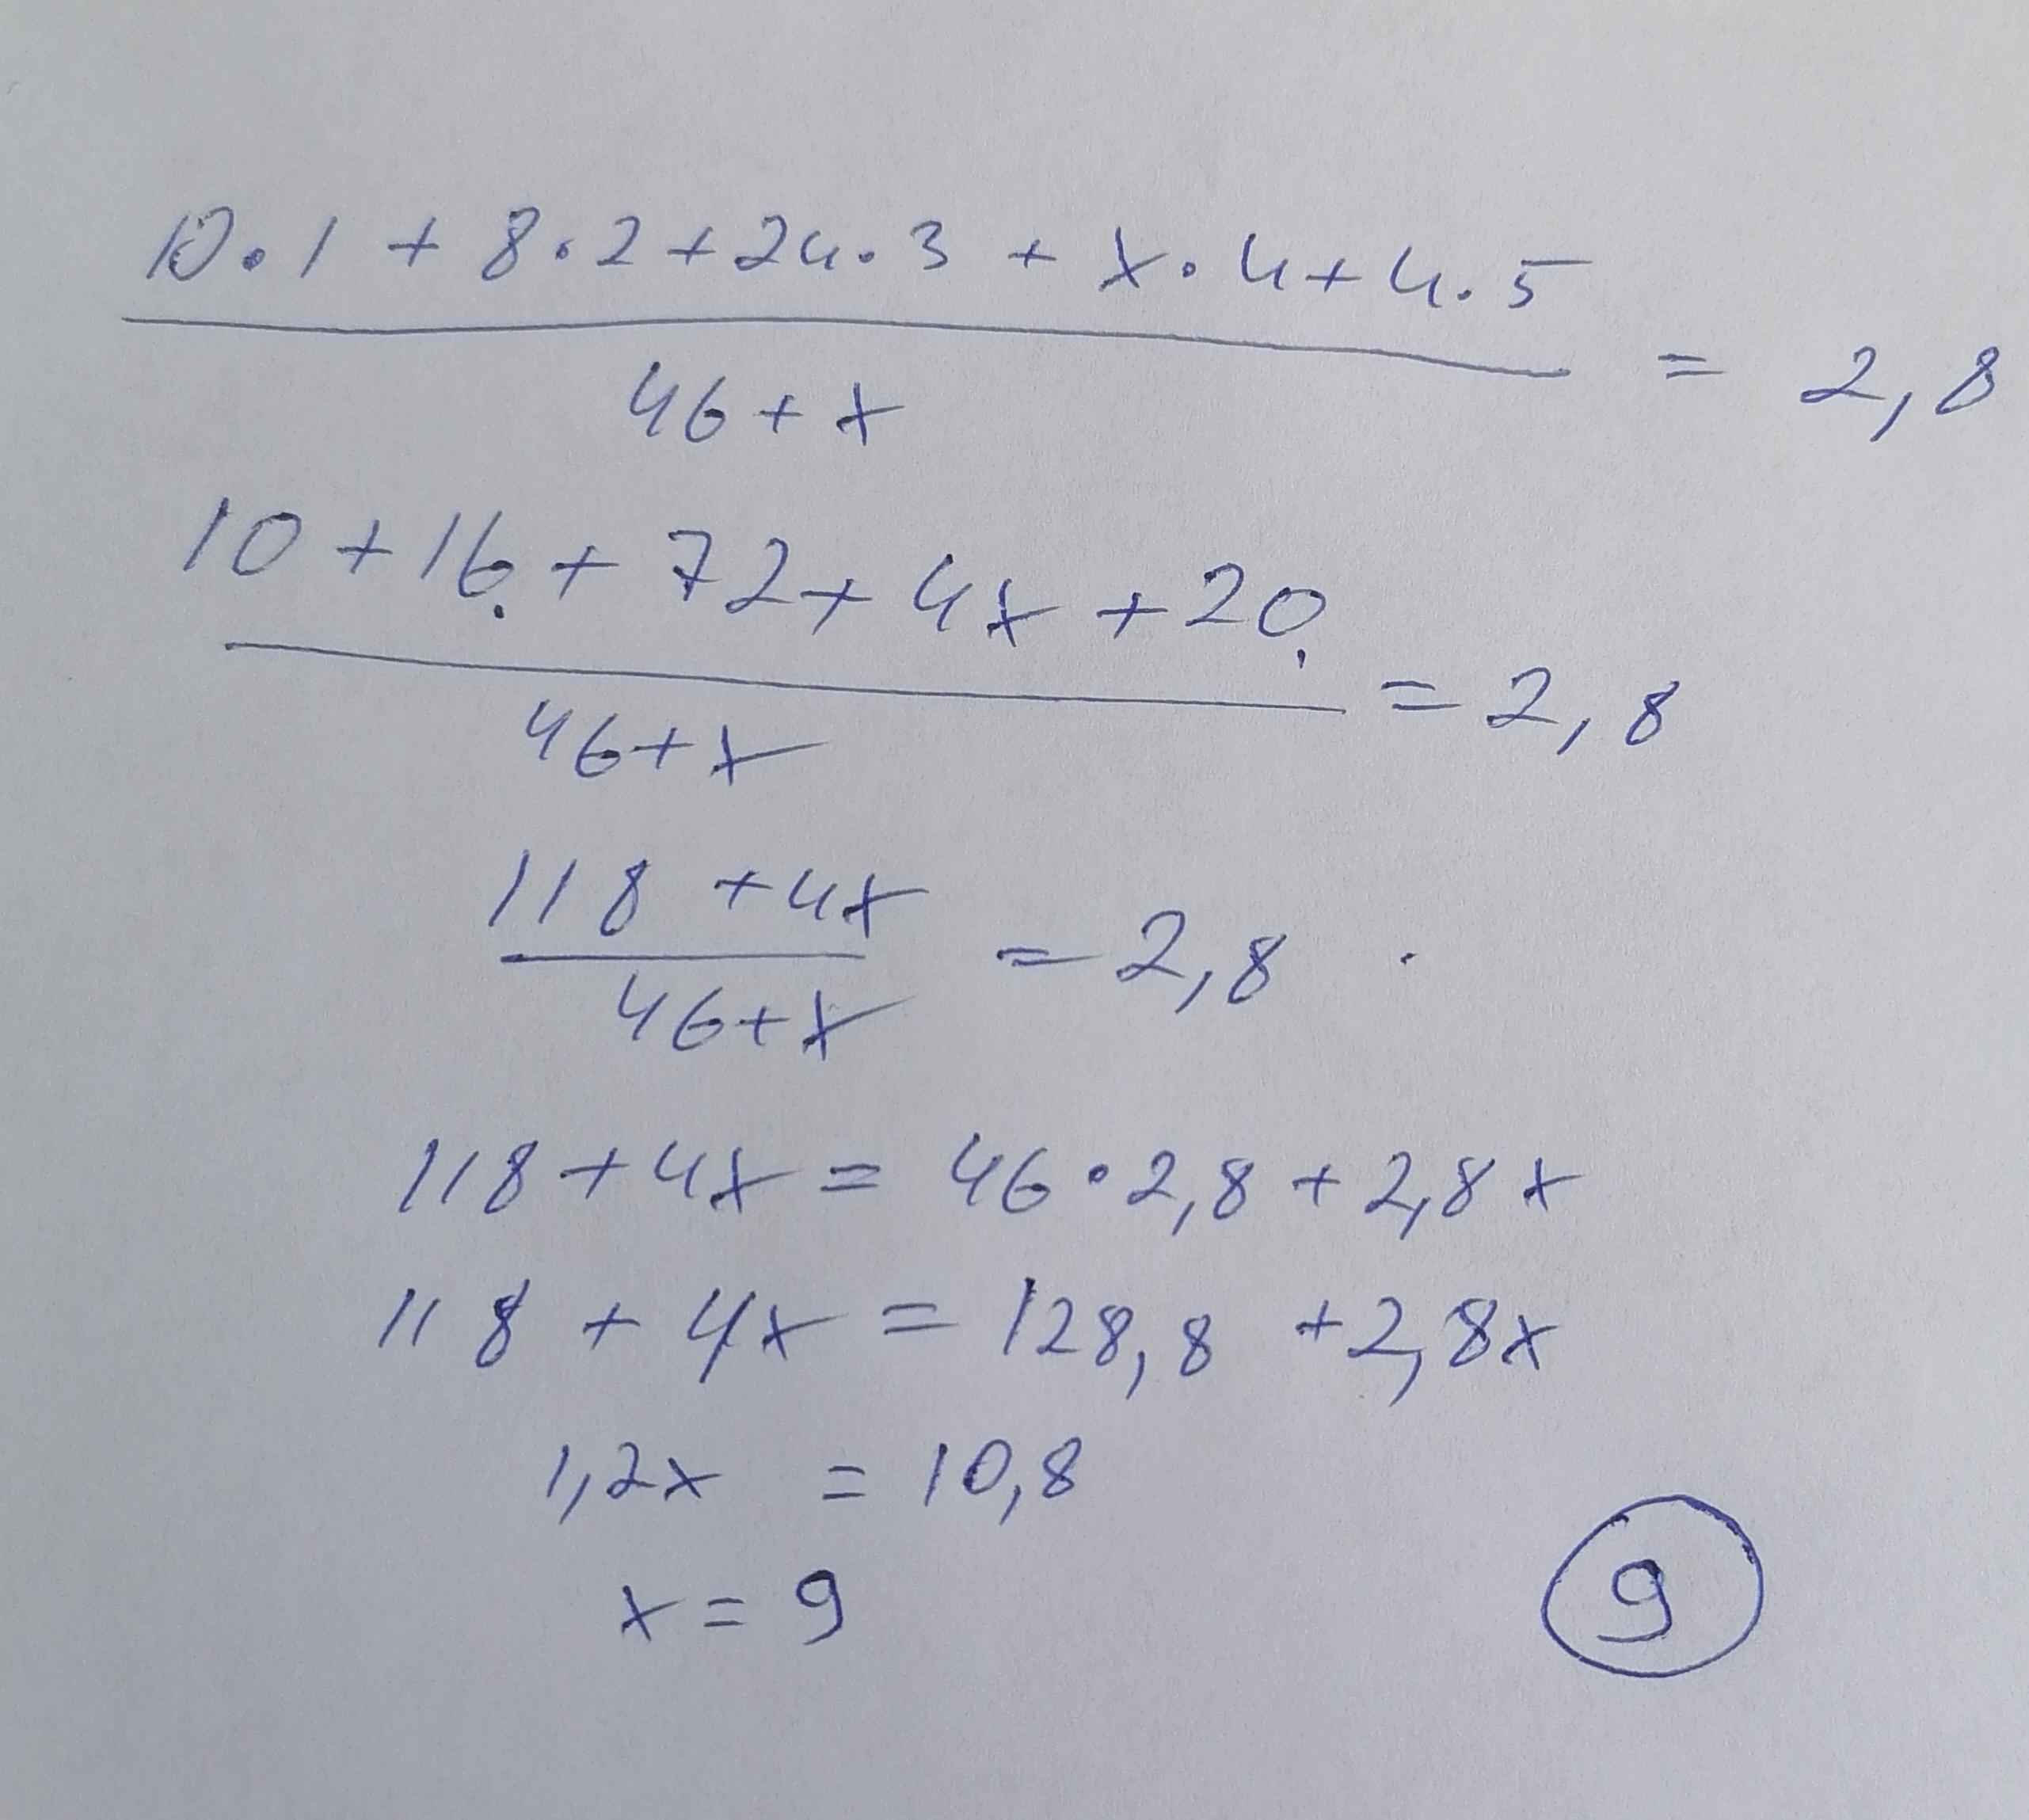 10·1 + 8·2 + 24·3 + x·4 + 4·5
= 2,8
46 + x
10 + 16 + 72 + 4x + 20
= 2,8
46 + x
118 + 4x
= 2,8
46 + x
118 + 4x = 46·2,8 + 2,8x
118 + 4x = 128,8 + 2,8x
1,2x = 10,8
x = 9
9